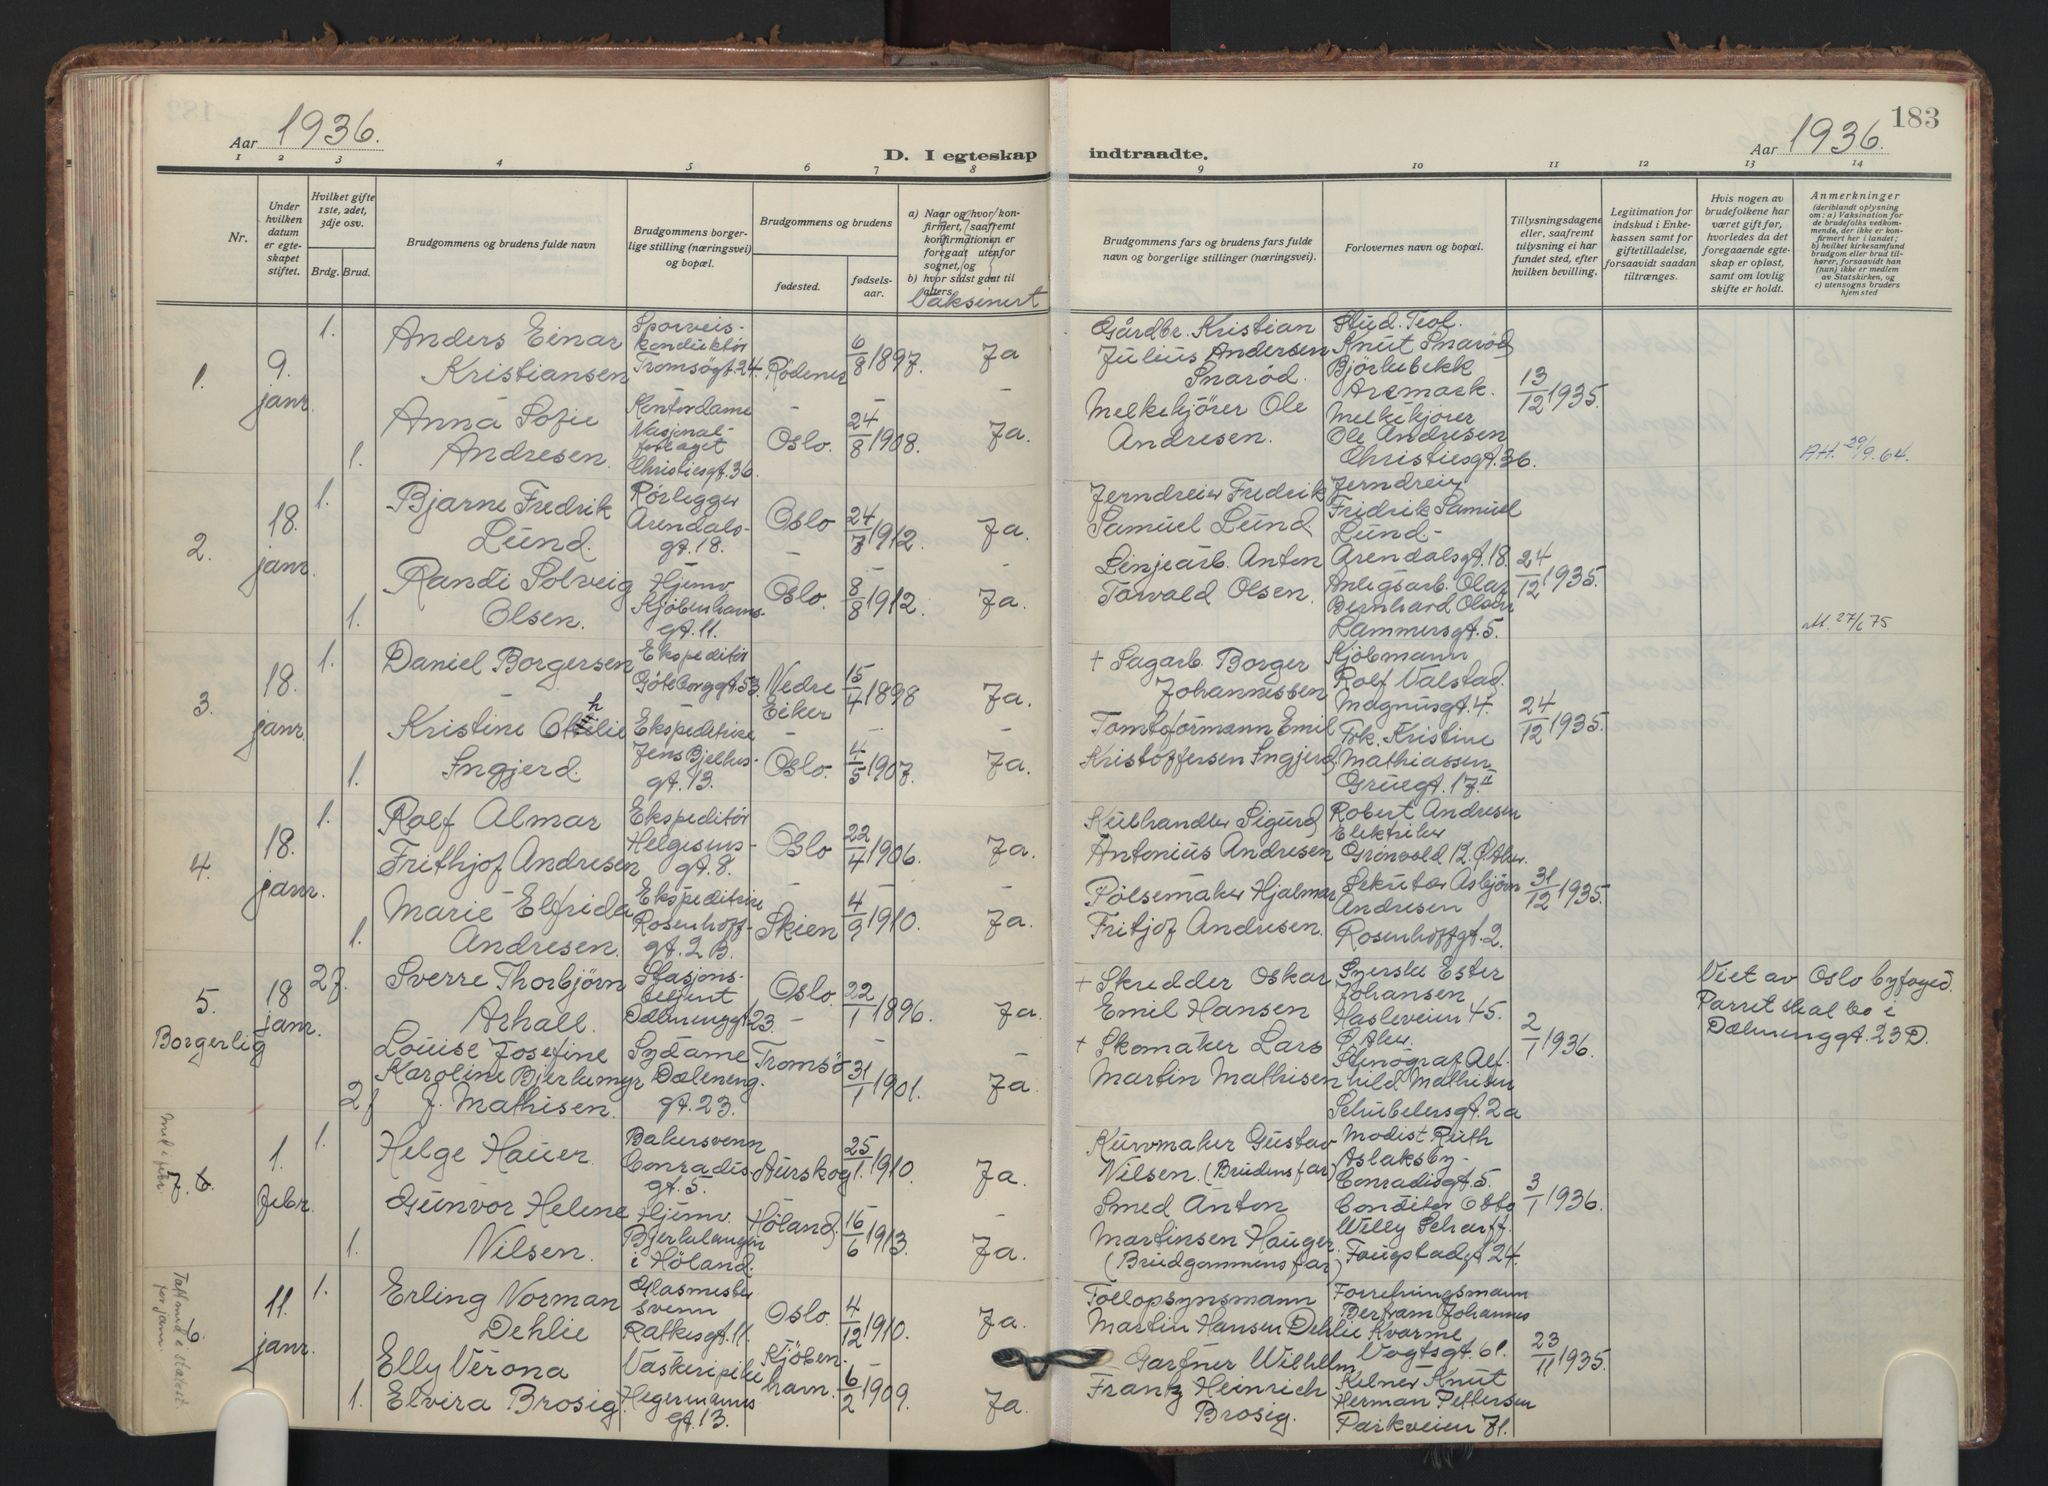 183
Aar 1936.
D. I egteskap indtraadte.
Aar 1936.
1 2 3 4 5 6 7 8 9 10 11 12 13 14
Nr.
Under hvilken datum er egteskapet stiftet.
Hvilket gifte 1ste, 2det, 3dje osv.
Brdg. Brud.
Brudgommens og brudens fulde navn
Brudgommens borgerlige stilling (næringsvei) og bopæl.
Brudgommens og brudens
fødested.
fødselsaar.
a) Naar og hvor konfirmert, saafremt konfirmationen er foregaat utenfor sognet, og
b) hvor sidst gaat til alters.
Vaksinert
Brudgommens fars og brudens fars fulde navn og borgerlige stillinger (næringsvei).
Forlovernes navn og bopæl.
Tillysningsdagene eller, saafremt tillysning ei har fundet sted, efter hvilken bevilling.
Legitimation for indskud i Enkekassen samt for giftertilladelse, forsaavidt saadan tiltrænges.
Hvis nogen av brudefolkene har været gift før, hvorledes da det foregaaende egteskap er opløst, samt om lovlig skifte er holdt.
Anmerkninger
(deriblandt oplysning om: a) Vaksination for de brudefolks vedkommende, der ikke er konfirmert her i landet; b) hvilket kirkesamfund brudgom eller brud tilhører, forsaavidt han (hun) ikke er medlem av Statskirken, og c) utensogns bruders hjemsted
1.
9. janr.
1.
Anders Einar
Kristiansen
Sporveis-
konduktør
Tromsøgt. 24.
Rödenes
6/8 1897.
Ja
Gårdbr. Kristian
Julius Andersen
Snaröd.
Stud. Teol.
Knut Snaröd
Bjørkebekk
Aremark.
13/12 1935.
1.
Anna Sofie
Andresen.
Kontordame
Nasjonal-
forlaget
Christiesgt. 36
Oslo.
24/8 1908.
Ja.
Melkekjörer Ole
Andresen.
Melkekjörer
Ole Andresen
Christiesgt. 36.
Att. 29/9.64.
2.
18. janr.
1.
Bjarne Fredrik
Lund.
Rörlegger
Arendals-
gt. 18.
Oslo
24/7 1912.
Ja.
Jerndreier Fredrik
Samuel Lund.
Jerndreier
Fridrik Samuel
Lund-
Arendalsgt. 18.
24/12 1935.
1.
Randi Solveig
Olsen.
Hjemv.
Kjöbenhavns-
gt. 11.
Oslo.
8/8 1912.
Ja.
Linjearb. Anton
Torvald Olsen.
Anlegsarb. Olaf
Bernhard Olsen
Lammersgt. 5.
att. 27/6 75
3.
18. janr.
1.
Daniel Borgersen
Ekspeditör
Göteborggt. 53.
Nedre
Eiker
15/4 1898
Ja.
+ Sagarb. Borger
Johannessen
Kjöbmann
Rolf Valstad.
Magnusgt. 4.
24/12 1935.
1.
Kristine Othilie
Ingjerd.
Ekspeditrise
Jens Bjelkes-
gt. 13.
Oslo.
4/5 1907.
Ja.
Tomteformann Emil
Kristoffersen Ingjerd
Frk. Kristine
Mathiassen
Gruegt. 17. II
4.
18. janr.
1.
Rolf Almar
Frithjof Andresen
Ekspeditör
Helgesens-
gt. 8.
Oslo
22/4 1906.
Ja.
Kulhandler Sigurd
Antonius Andresen
Robert Andresen
Elektriker
Grönvold 12. Ö. Aker.
31/12 1935.
1.
Marie Elfrida
Andresen.
Ekspeditrise
Rosenhoff-
gt. 2 B.
Skien
4/9 1910.
Ja.
Pölsemaker Hjalmar
Fritjof Andresen.
Sekretær Asbjörn
Andresen
Rosenhoffgt. 2.
5.
Borgerlig
18 janr.
2 f.
Sverre Thorbjörn
Arhall.
Stasjons-
betjent
Dælenenggt 23.
Oslo.
22/1 1896.
Ja.
+ Skredder Oskar
Emil Hansen
Syerske Ester
Johansen
Hasleveien 45.
Ö. Aker.
2/1 1936.
Viet av Oslo byfoged.
Parret skal bo i
Dælenenggt. 23 D.
2 f
Louise Josefine
Karoline Bjerkemyr
f. Mathisen.
Sydame
Dæleneng.
gt. 23.
Tromsö
31/1 1901.
Ja.
+ Skomaker Lars
Martin Mathisen
Stenograf Alf-
hild Mathisen
Schübelersgt. 2a
Med i febr.
7. 6.
1. febr.
1.
Helge Hauer.
Bakersvenn
Conradis
gt. 5.
Aurskog
25/1 1910.
Ja.
Kurvmaker Gustav
Nilsen. (Brudens far)
Modist Ruth
Aslaksby-
Conradisgt. 5.
3/1 1936.
1.
Gunvor Helene
Nilsen.
Hjemv.
Bjerkelangen
i Höland.
Höland
16/6 1913.
Ja.
Smed Anton
Martinsen Hauger.
(Brudgommens far)
Conditor Otto
Willy Scharff.
Fougstadgt 24.
Tatt med i statist.
for jann.
6
11. janr.
1.
Erling Norman
Dehlie
Glasmester
svenn
Ratkesgt. 11.
Oslo.
4/12 1910.
Ja.
Tollopsynsmann
Martin Hansen Dehlie
Forretningsmann
Bertram Johannes
Kvarme
Vogtsgt. 61.
23/11 1935.
1.
Elly Verona
Elvira Brosig.
Vaskeripike
Hegermanns
gt. 13.
Kjöben-
havn.
6/2 1909.
Ja.
Gartner Wilhelm
Franz Heinrich
Brosig.
Kelner Knut
Herman Pettersen
Parkveien 71.